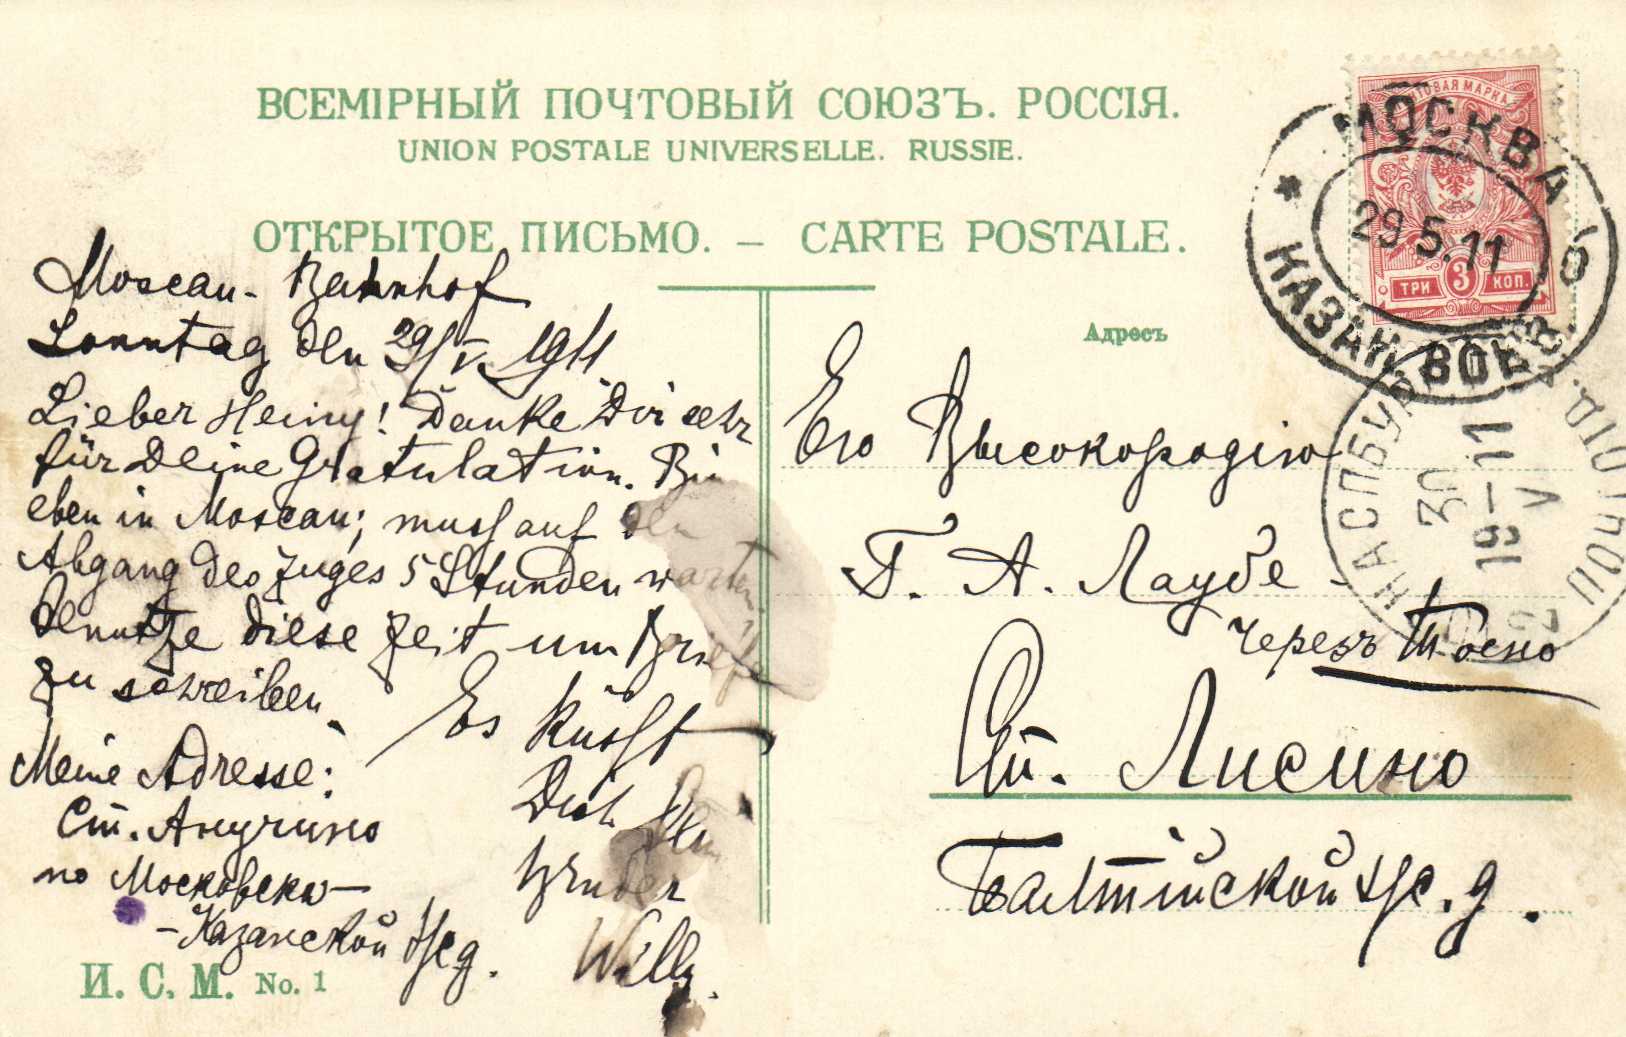 ВСЕМІРНЫЙ ПОЧТОВЫЙ СОЮЗЪ. РОССІЯ.
UNION POSTALE UNIVERSELLE. RUSSIE.
ОТКРЫТОЕ ПИСЬМО. — CARTE POSTALE.
ПОЧТОВАЯ МАРКА
ТРИ 3 КОП.
МОСКВА
29.5.11
КАЗАН. ВОКЗ.
Адресъ
Moscau- Bahnhof
Sonntag den 29/V. 1911
Lieber Heiny! Danke Dir sehr
für Deine Gratulation. Bin
eben in Moscau; muss auf den
Abgang des Zuges 5 Stunden warten.
Benutze diese Zeit um Briefe
zu schreiben.
Es küsst
Dich Dein
Bruder
Willy.
Meine Adresse:
Ст. Анучино
по Московско-
-Казанской жд.
Его Высокородію
Г. А. Лаубе
черезъ Тосно
Ст. Лисино
Балтійской ж. д.
30
V
19-11
2
И. С. М. No. 1